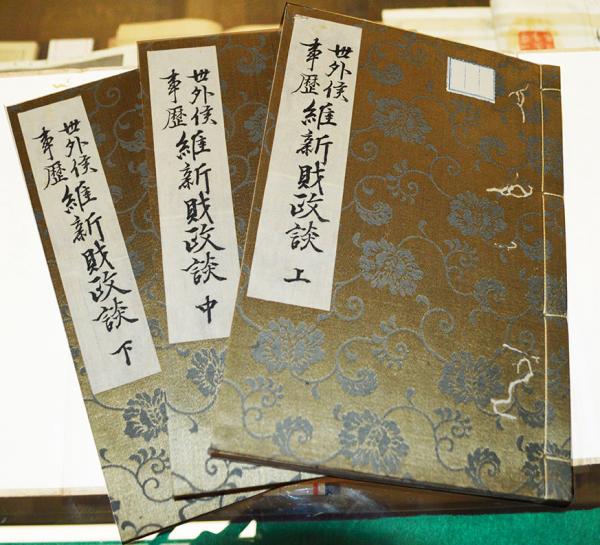 世外侯
事歴
維新財政談
上
世外侯
事歴
維新財政談
中
世外侯
事歴
維新財政談
下